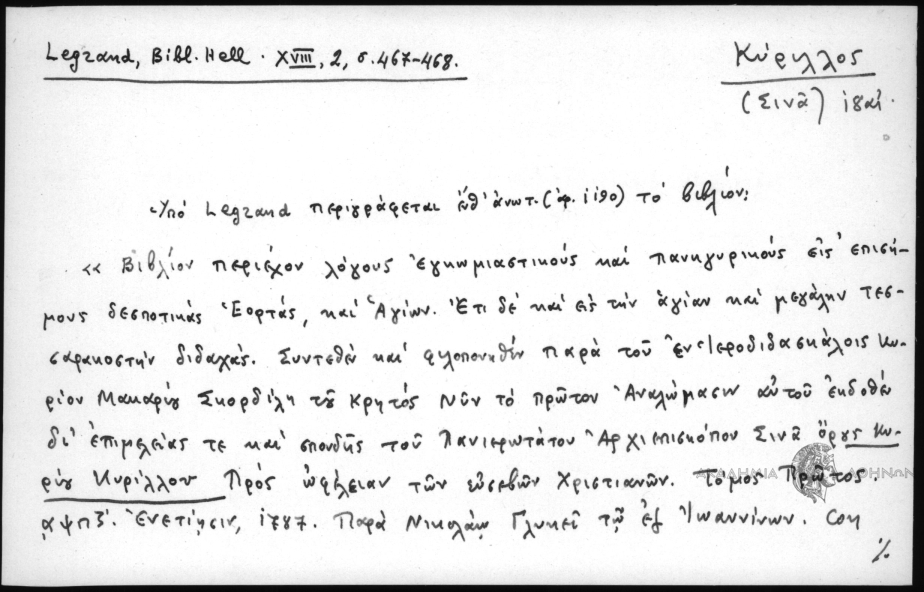 Legrand, Bibl. Hell. XVIII, 2, σ. 467-468.
Κύριλλος
(Σινᾶ) ἰδαί.
Ὑπό Legrand περιγράφεται ἔνθ' ἀνωτ. (ἀρ. 1190) τό βιβλίον:
« Βιβλίον περιέχον λόγους Ἐγκωμιαστικούς καί πανηγυρικούς εἰς ἐπισή-
μους δεσποτικάς Ἑορτάς, καί Ἁγίων. Ἔτι δέ καί εἰς τήν ἁγίαν καί μεγάλην τεσ-
σαρακοστήν διδαχάς. Συντεθέν καί φιλοπονηθέν παρά τοῦ ἐν Ἱεροδιδασκάλοις Κυ-
ρίου Μακαρίου Σκορδίλη τοῦ Κρητός Νῦν τό πρῶτον Ἀναλώμασιν αὐτοῦ ἐκδοθέν
δι' ἐπιμελείας τε καί σπουδῆς τοῦ Πανιερωτάτου Ἀρχιεπισκόπου Σινᾶ ὄρους Κυ-
ρίου Κυρίλλου Πρός ὠφέλειαν τῶν εὐσεβῶν Χριστιανῶν. Τόμος Πρῶτος.
ΑΚΑΔΗΜΙΑ ΑΘΗΝΩΝ
͵αψπζ΄. Ἐνετίησιν, 1787. Παρά Νικολάῳ Γλυκεῖ τῷ ἐξ Ἰωαννίνων. Con
%